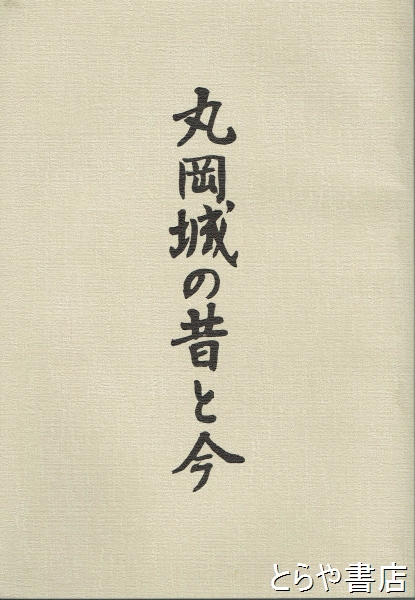 丸岡城の昔と今
とらや書店